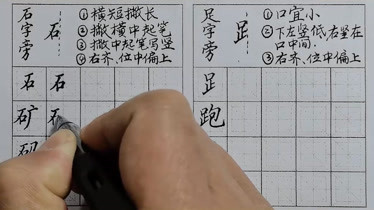 石字旁
石
①横短撇长
②撇横中起笔
③撇中起笔写竖
④右齐、位中偏上
石 石
矿 石
砚
足字旁
⻊
①口宜小
②下左竖低右竖在口中间.
③右齐、位中偏上
⻊
跑